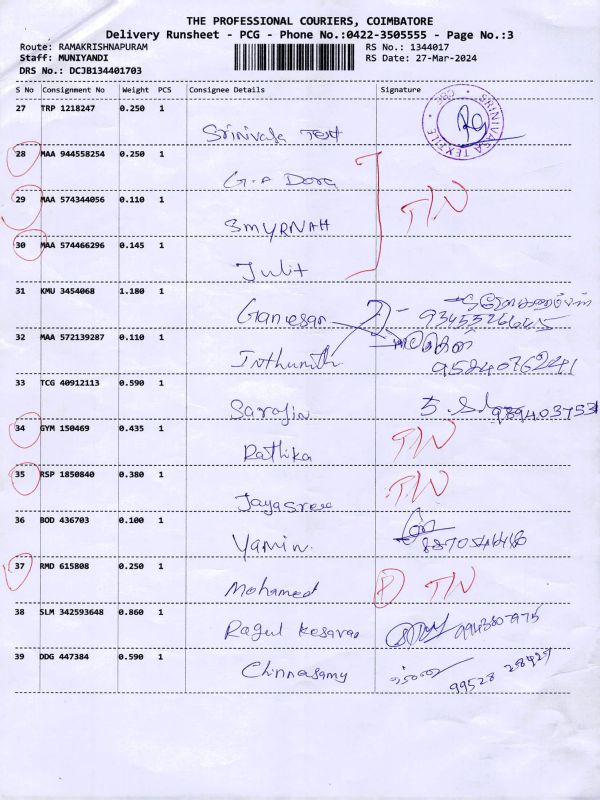 THE PROFESSIONAL COURIERS, COIMBATORE
Delivery Runsheet - PCG - Phone No.:0422-3505555 - Page No.:3
Route: RAMAKRISHNAPURAM
RS No.: 1344017
Staff: MUNIYANDI
RS Date: 27-Mar-2024
DRS No.: DCJB134401703
S No Consignment No Weight PCS Consignee Details Signature
27 TRP 1218247 0.250 1
Srinivasa Text
SRINIVASA TEXTILE CBE
28 MAA 944558254 0.250 1
G.A Dora
29 MAA 574344056 0.110 1
SMYRNAH T/N
30 MAA 574466296 0.145 1
Julit
31 KMU 3454068 1.180 1
Ganesan
32 MAA 572139287 0.110 1
9524076241
33 TCG 40912113 0.590 1
Sarojin
34 GYM 150469 0.435 1
Rathika T/N
35 RSP 1850840 0.380 1
Jayasree T/N
36 BOD 436703 0.100 1
Yamin.
37 RMD 615808 0.250 1
Mohamed T/N
38 SLM 342593648 0.860 1
Ragul Kesavan 9943807975
39 DDG 447384 0.590 1
Chinnasamy 99528 28929